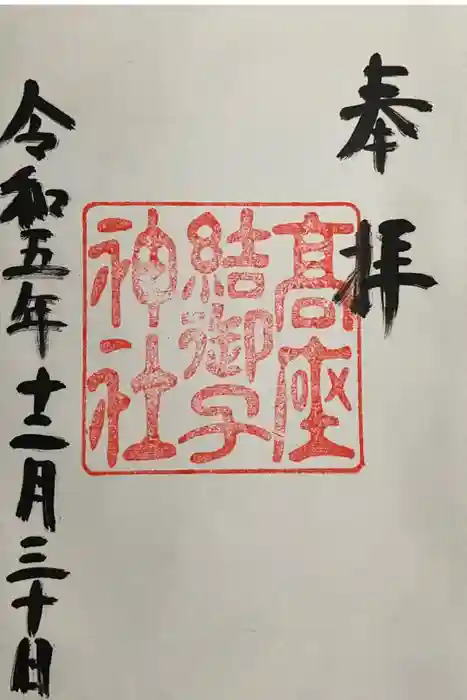 奉拝
髙座
結御子
神社
令和五年十二月三十日